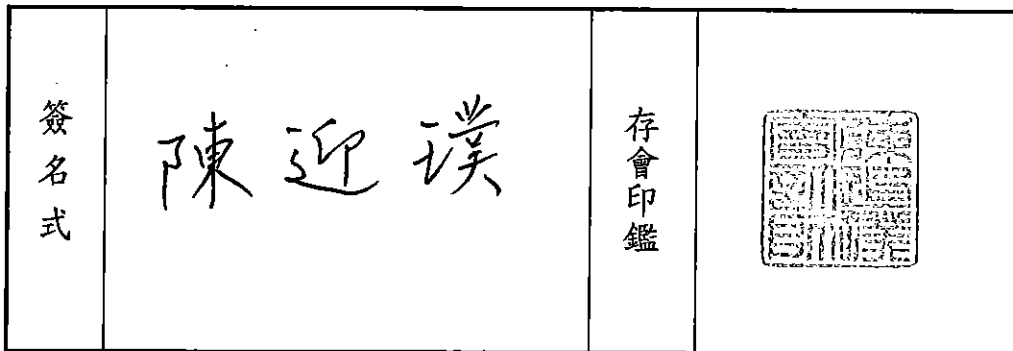 簽名式
陳迎璞
存會印鑑